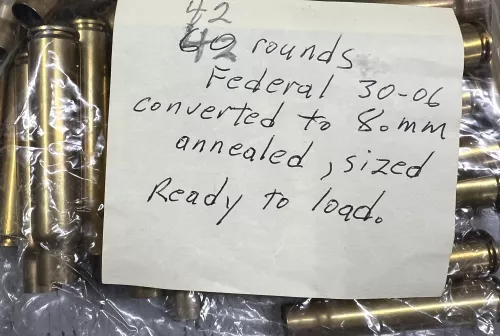 42
42 rounds
Federal 30-06
converted to 8.mm
annealed, sized
Ready to load.